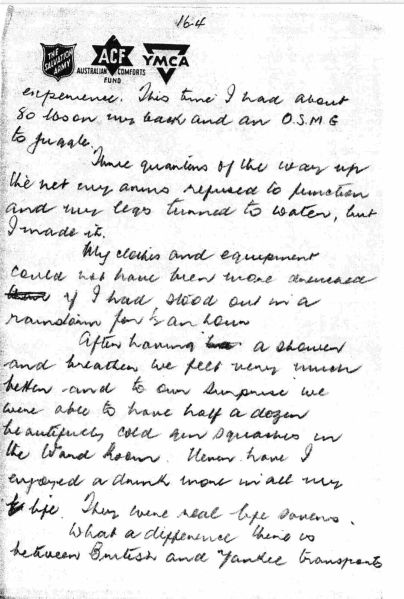 164
THE SALVATION ARMY
ACF
AUSTRALIAN COMFORTS FUND
YMCA
experience. This time I had about
80 lbs on my back and an O.S.M.G
to juggle.
Three quarters of the way up
the net my arms refused to function
and my legs turned to water, but
I made it.
My clothes and equipment
could not have been more drenched
if I had stood out in a
rainstorm for ½ an hour
After having a shower
and breather we felt very much
better and to our surprise we
were able to have half a dozen
beautifully cold gin squashes in
the Ward Room. Never have I
enjoyed a drink more in all my
life. They were real life savers.
What a difference there is
between British and Yankee transports